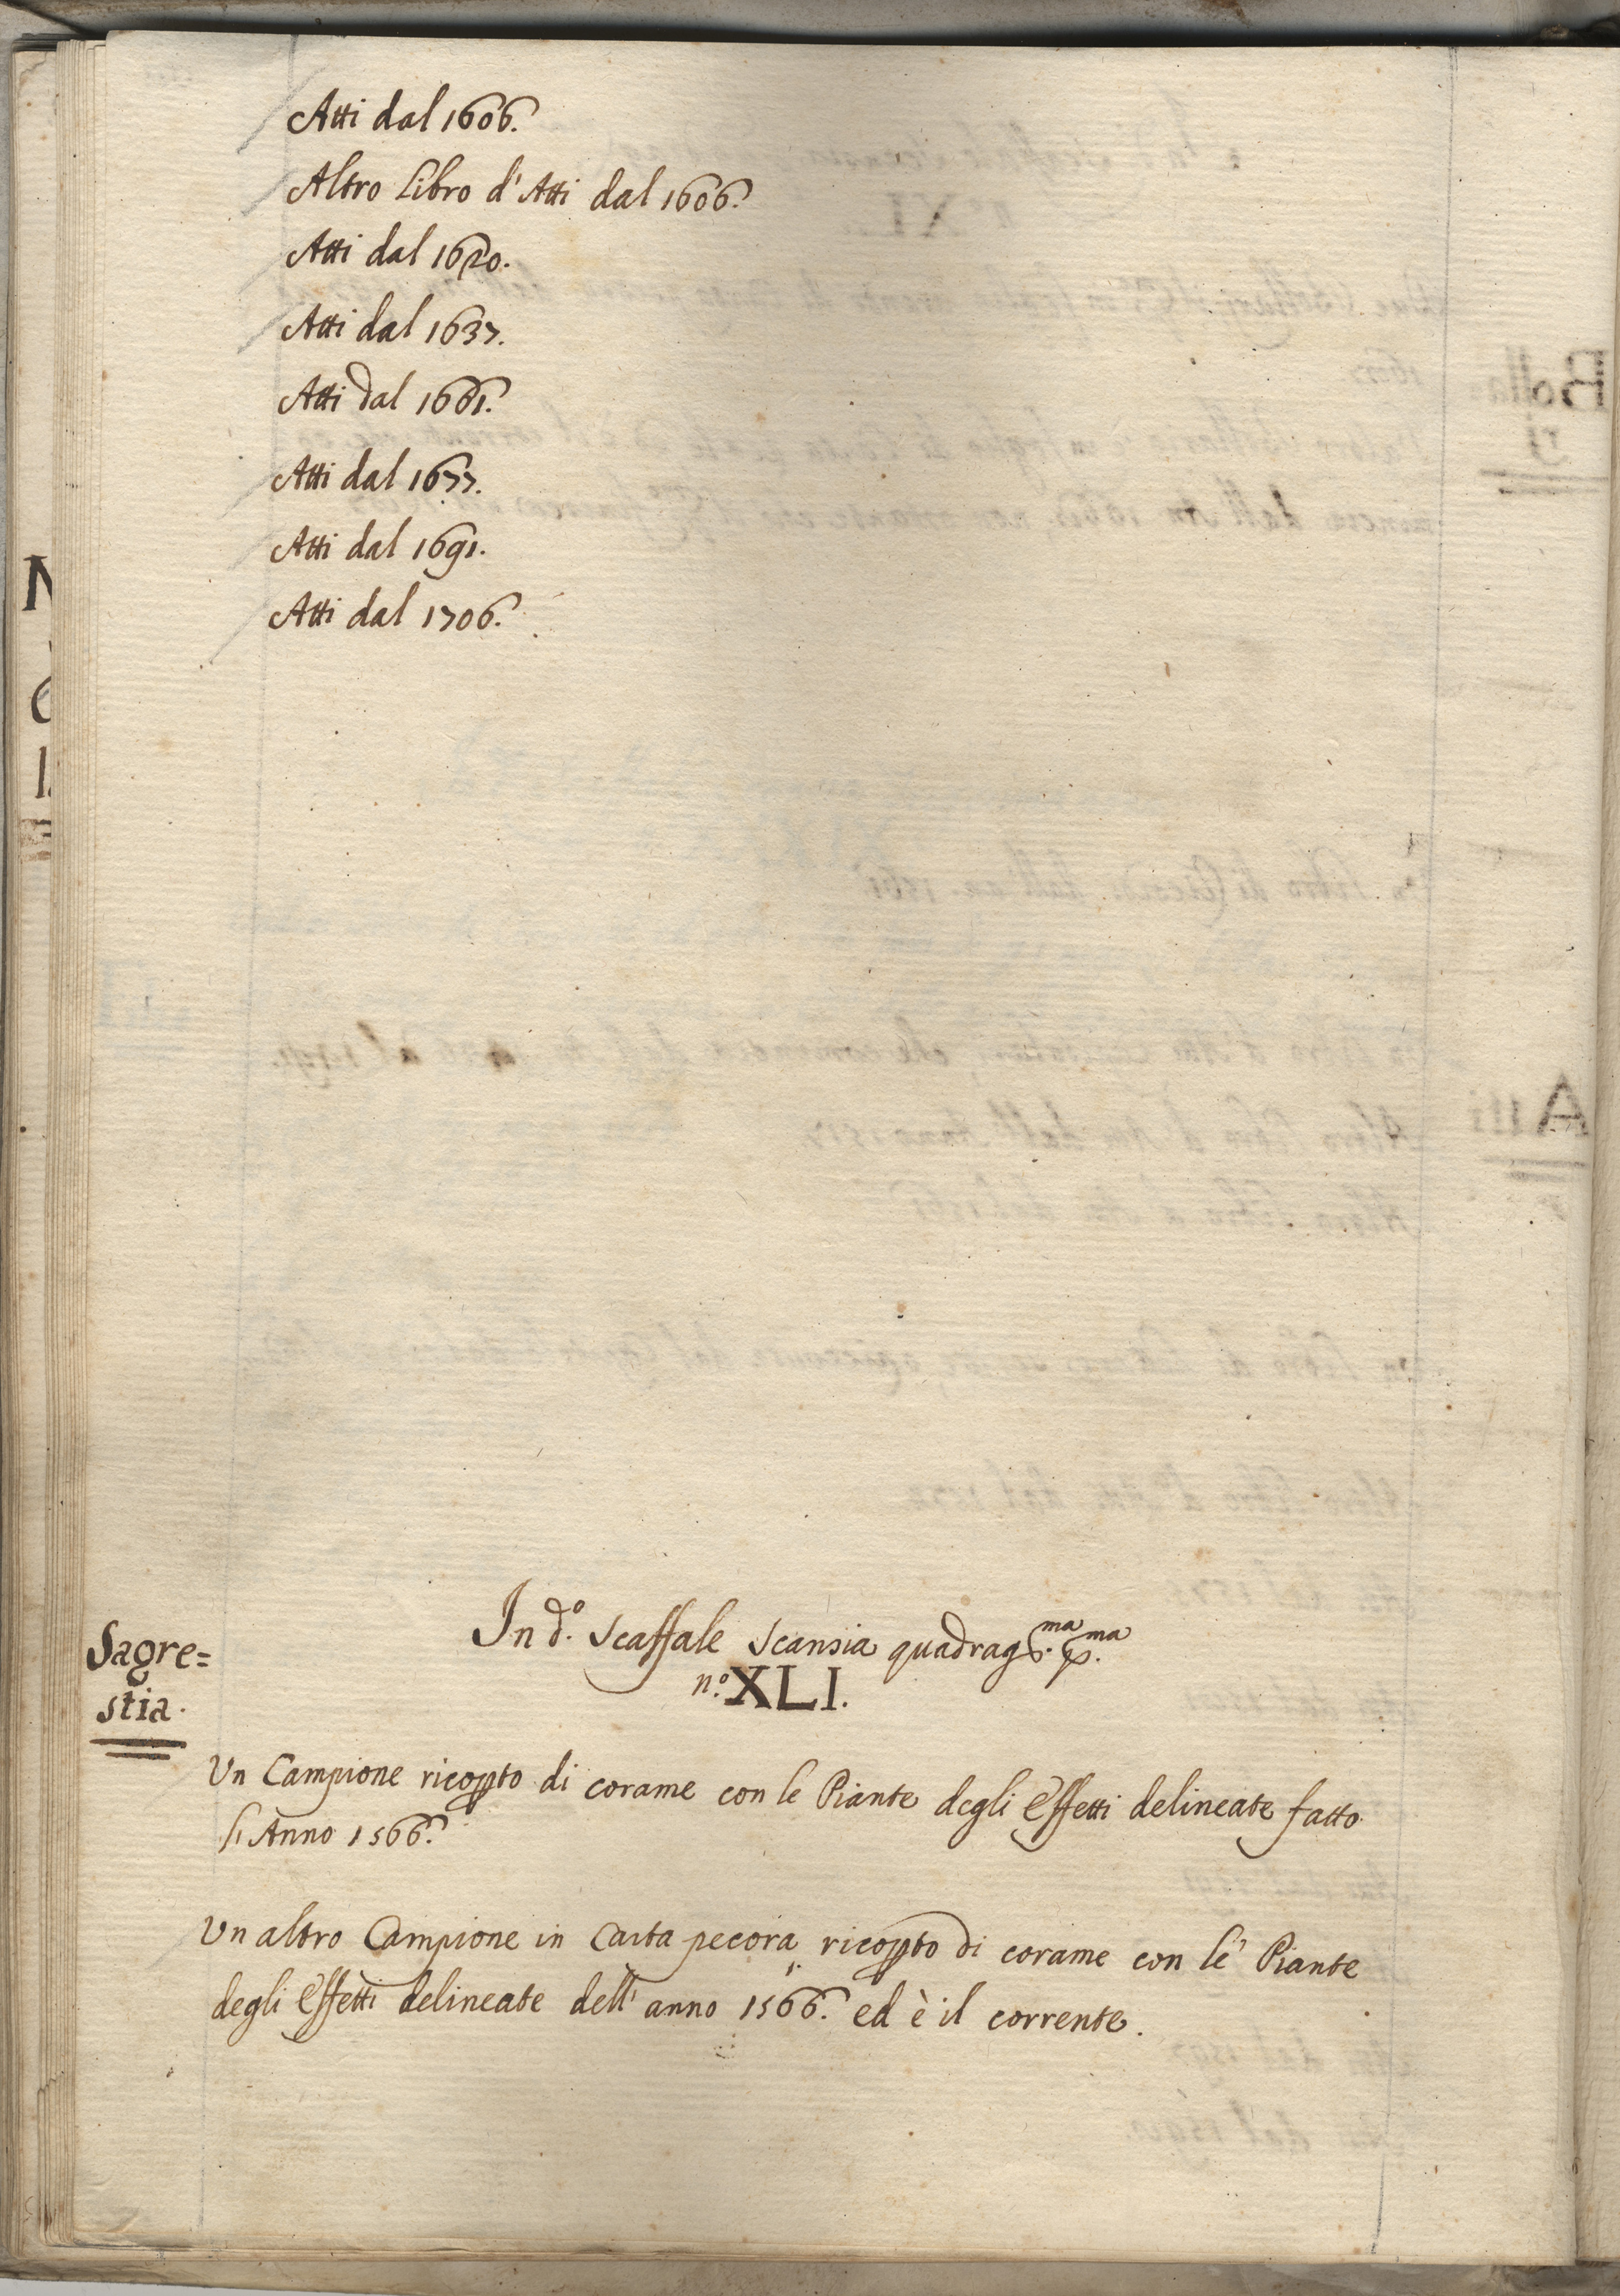 Atti dal 1606.
Altro Libro d' Atti dal 1606.
Atti dal 1620.
Atti dal 1637.
Atti dal 1661.
Atti dal 1677.
Atti dal 1691.
Atti dal 1706.
In d.o Scaffale Scansia quadrag.ma p.ma
n.o XLI.
Sagre=
stia.
Un Campione ricopto di corame con le Piante degli Effetti delineate fatto
l'Anno 1566.
Un altro Campione in Carta pecora ricopto di corame con le Piante
degli Effetti delineate dell' anno 1566. ed è il corrente.